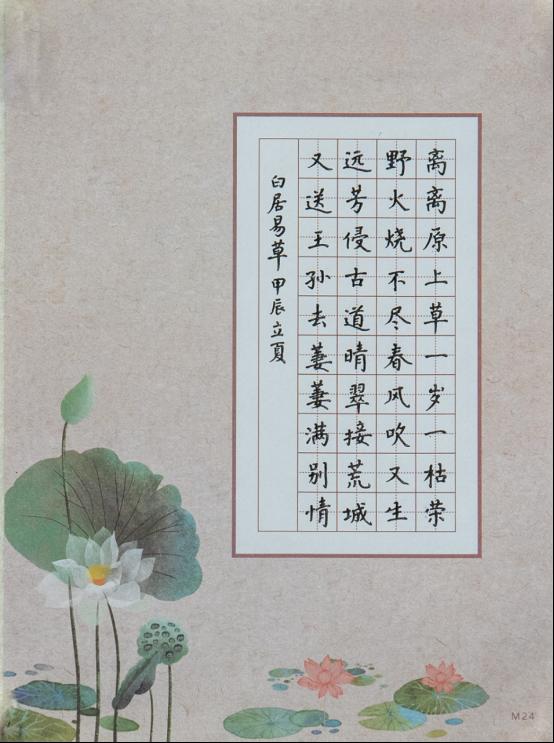 离离原上草一岁一枯荣
野火烧不尽春风吹又生
远芳侵古道晴翠接荒城
又送王孙去萋萋满别情
白居易草甲辰立夏
M24